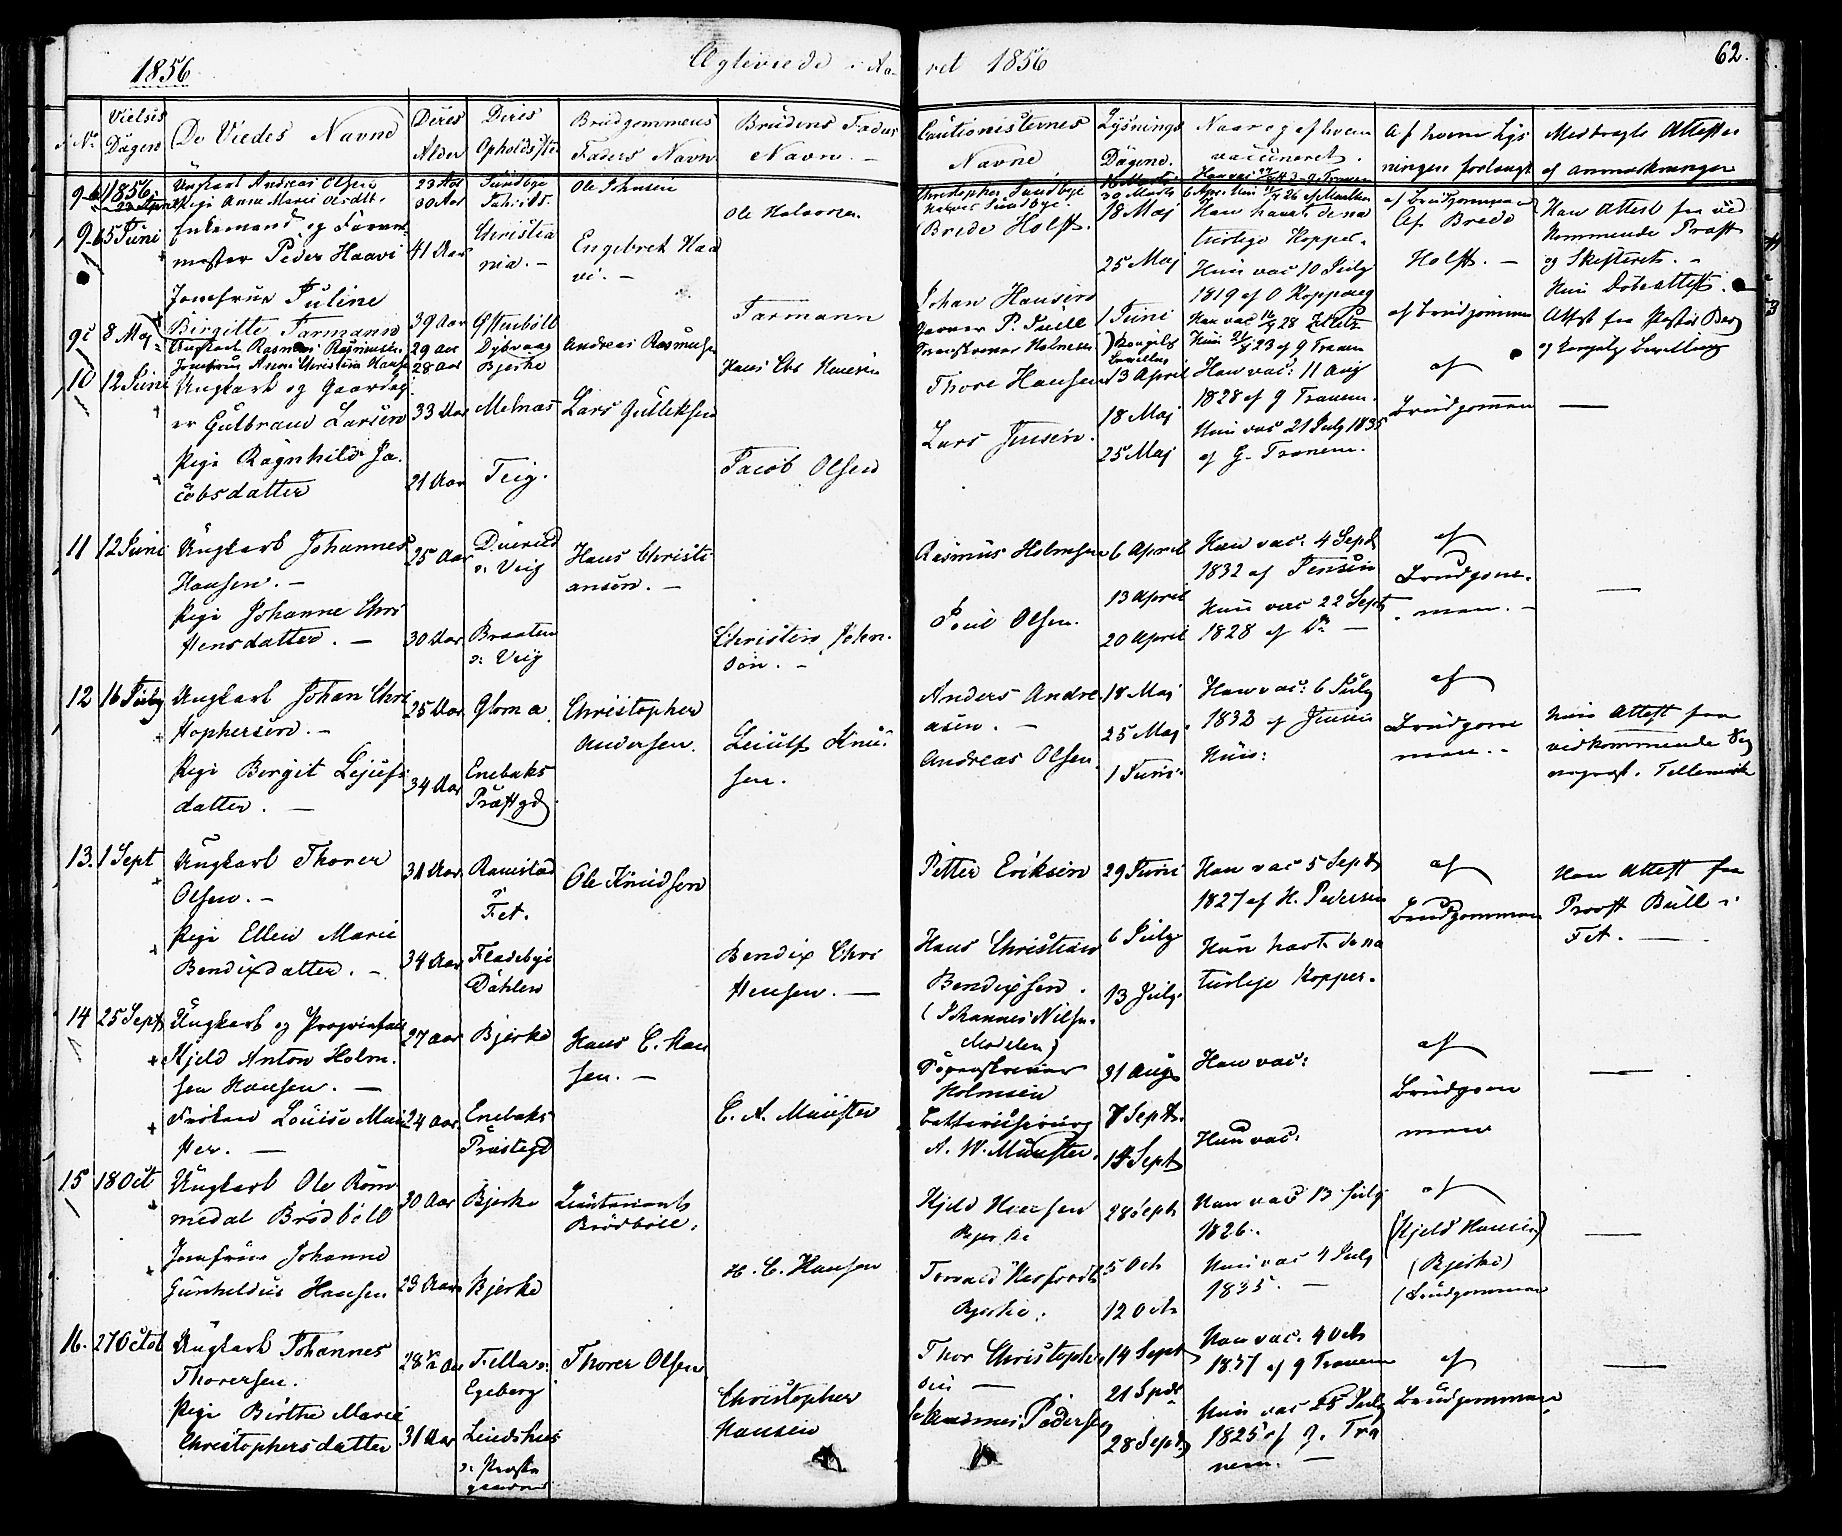 1856
Ægteviede i Aaret 1856
62.
No
Vielses Dagen
De Viedes Navne
Deres Alder
Deres Opholdsste
Brudgommens Faders Navn
Brudens Faders Navn. -
Cautionisternes Navne
Lysnings Dagene.
Naar og af hvem vaccineret.
Af hvem Lysningen forlangt
Medbragte Attester og Anmærkninger
1856
Ungkarl Andreas Olsen
23 Aar
Sundbye
Ole Johnsen
Pige Anne Marie Olsdtr.
30 Aar
Ole Halvorsen
Christopher Sundbye
30 Marts
af Brudgommen
9 b
5 Juni
Enkemand og Farvermester Peder Haavi
41 Aar
Christiania. -
Engebret Haavi. -
Jomfrue Juline Birgitte Tarmann
39 Aar
Østenbøll
Tarmann
Brede Holst.
Johan Hansen
18 Maj
25 Maj
1 Juni
Han havt de naturlige Kopper.
Hun vac 10 July 1819 af O Koppang
Af Brede Holst. -
Han Attest fra vedkommende Præst og Skifteret. -
Hun Døbeattest.
9 c
8 Maj
Ungkarl Rasmus Rasmussen
29 Aar
Dybvaag
Andreas Rasmusen
Jomfrue Anne Christine Hansen
28 Aar
Bjerke
Hans Chr Hansen
af Brudgommen
Attest fra Pastor Berg
og kongelig Bevilling
10
12 Juni
Ungkarl og Gaardeier Gulbrand Larsen
33 Aar
Melnæs
Lars Gulleksen
Pige Ragnhild Jacobsdatter
21 Aar
Teig.
Jacob Olsen
Thore Hansen
Lars Jensen.
13 April
18 Maj
25 Maj
Han vac: 11 Aug 1828 af G Tranem.
Hun vac 21 July 1835 af G. Tranem.
af Brudgommen
—
11
12 Juni
Ungkarl Johannes Hansen. -
25 Aar
Duerud v: Veig
Hans Christiansen. -
Pige Johanne Christensdatter. -
30 Aar
Braaten v: Veig
Christen Johnsen. -
Rasmus Holmsen
Poul Olsen.
6 April
13 April
20 April
Han vac: 4 Sept 1832 af Jensen
Hun vac 22 Sept 1828 af Do —
af Brudgommen. -
—
12
16 July
Ungkarl Johan Christophersen. -
25 Aar
Gloma.
Christopher Andersen.
Pige Bergit Lejufsdatter. -
34 Aar
Enebaks Præstgd
Leiulf Knudsen.
Anders Andreasen. -
Andreas Olsen.
18 Maj
25 Maj
1 Juni.
Han vac: 6 July 1832 af Jensen
Hun:
af Brudgommen. -
Hun Attest fra vedkommende Sogneprest. Tellemark
13.
1 Sept
Ungkarl Thorer Olsen. -
31 Aar
Ramstad i Fet.
Ole Knudsen
Pige Ellen Marie Bendixdatter. -
34 Aar
Fladebye Dahlen
Bendix Christensen. —
Petter Eriksen
Hans Christian Bendixsen.
(Johannes Nilsen Modelen)
29 Juni
6 July
13 July.
Han vac 5 Sept 1827 af H. Pedersen
Hun havt de naturlige Kopper.
af Brudgommen
Han Attest fra Provst Bull i Fet. —
14
25 Sept
Ungkarl og Proprietair Kjeld Anton Holmsen Hansen. —
27 Aar
Bjerke
Hans C. Hansen. —
Frøken Louise Münster. —
24 Aar
Enebaks Præstegd
C. A. Münster
Sorenskriver Holmsen
A. W. Münster.
31 Aug
7 Sept.
14 Sept
Han vac:
Hun vac:
af Brudgommen
—
15
18 Oct
Ungkarl Ole Rømmedal Brødbøll
30 Aar
Bjerke
Lieutenant Brødbøll.
Jomfrue Johanne Gunheldus Hansen
23 Aar
Bjerke
H. C. Hansen
Kjeld Hansen Bjerke
Bjerke.
28 Sept
5 Oct
12 Oct
Han vac 13 July 1826.
Hun vac 4 July 1835. —
af (Kjeld Hansen)
(Bjerke)
(Brudgommen
—
16.
27 Octob
Ungkarl Johannes Thorersen.
28 ½ Aar
Filla v: Egeberg
Thorer Olsen
Pige Birthe Marie Christophersdatter
31 Aar
Lundshus v: Præstegaarden
Christopher Hansen
Thor Christophersen —
Rasmus Pedersen
14 Sept
21 Sept
28 Sept
Han vac: 4 Oct 1837 af G Tranem
Hun vac 25 July 1825 af G. Tranem. —
af Brudgommen.
—